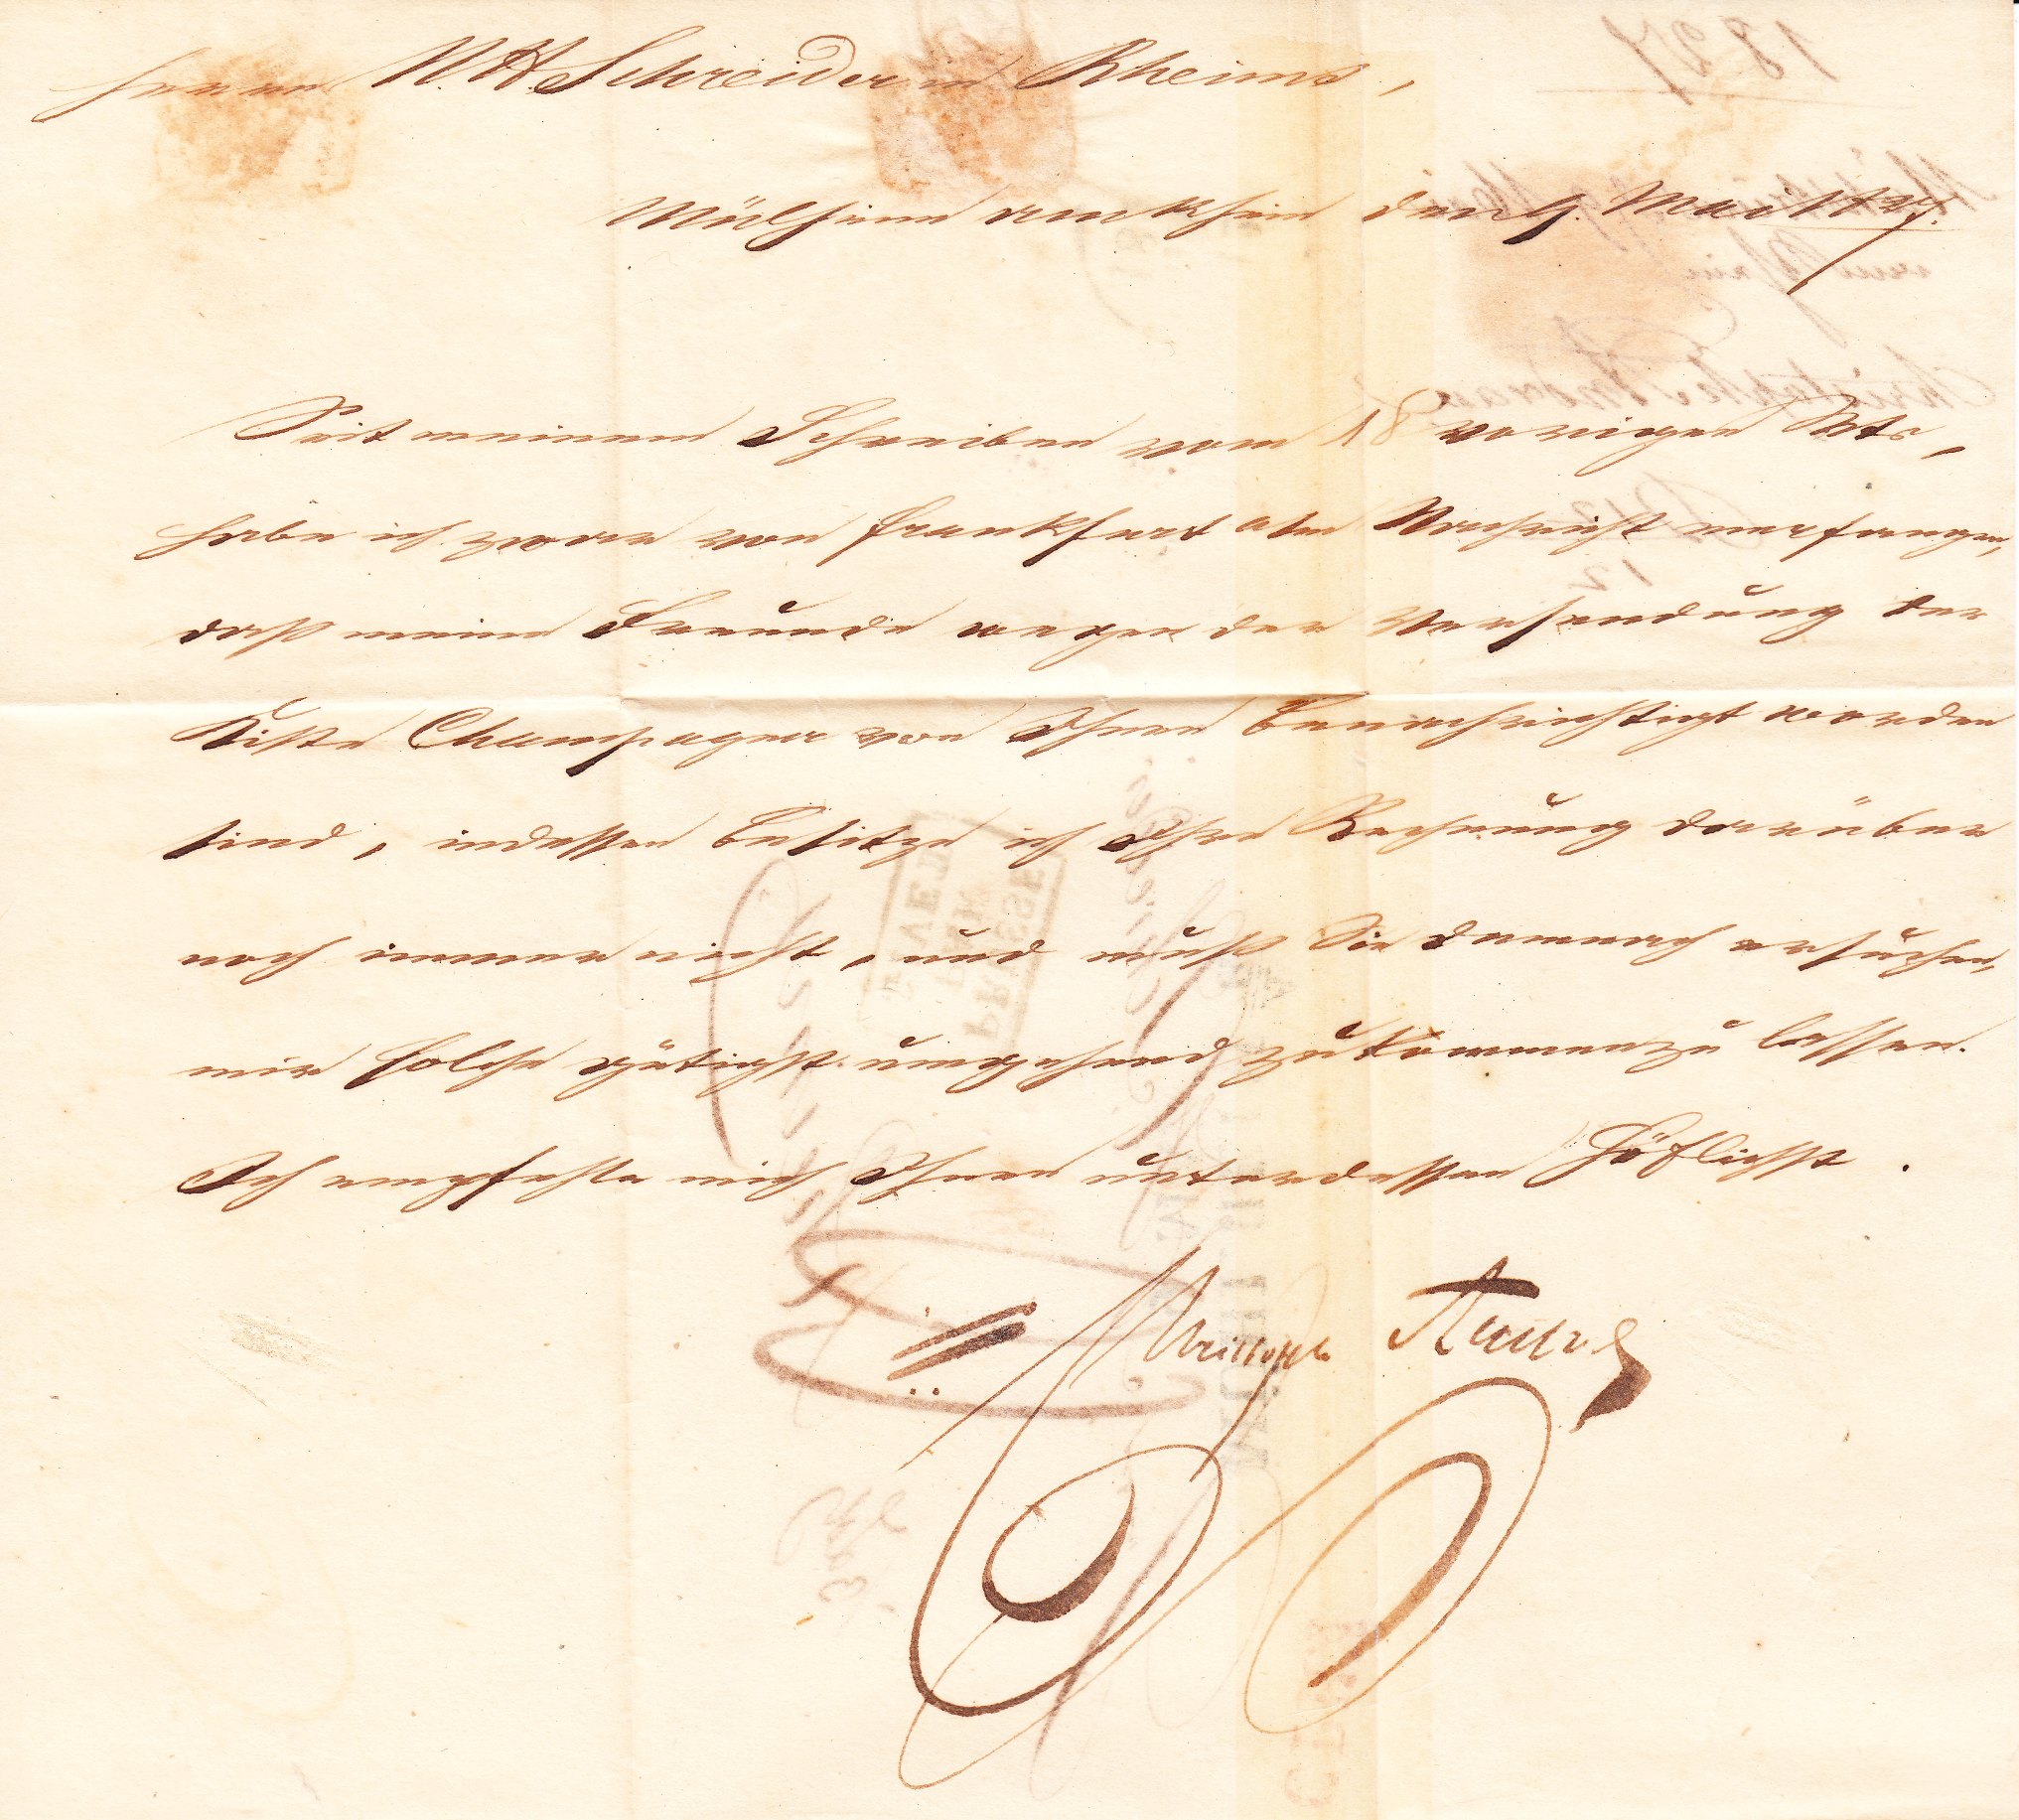 Herrn N. H. Schreider in Rheims,
Mülheim am Rhein den 9. Mai 1827.
Seit meinem Schreiben vom 18 vorigen Mts,
habe ich zwar von Frankfurt aus Nachricht empfangen,
daß meine Freunde wegen der Versendung der
Kiste Champagner von Ihnen benachrichtigt worden
sind, indessen besitze ich Ihre Rechnung darüber
noch immer nicht, und muß Sie demnach ersuchen,
mir solche gütigst umgehend zukommen zu lassen.
Ich empfehle mich Ihnen unterdessen höflichst.
Christoph Andreae
1827
Christophe Andreae
12